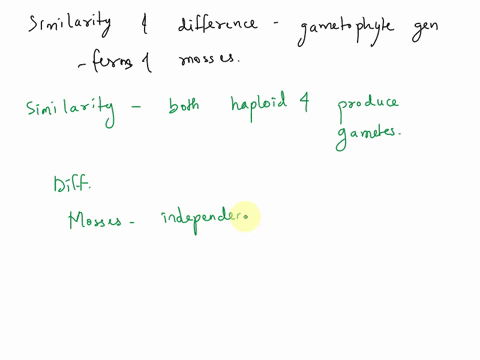 Similarity & difference - gametophyte gen
- ferns & mosses.
Similarity - both haploid & produce
gametes.
Diff.
Mosses - independe